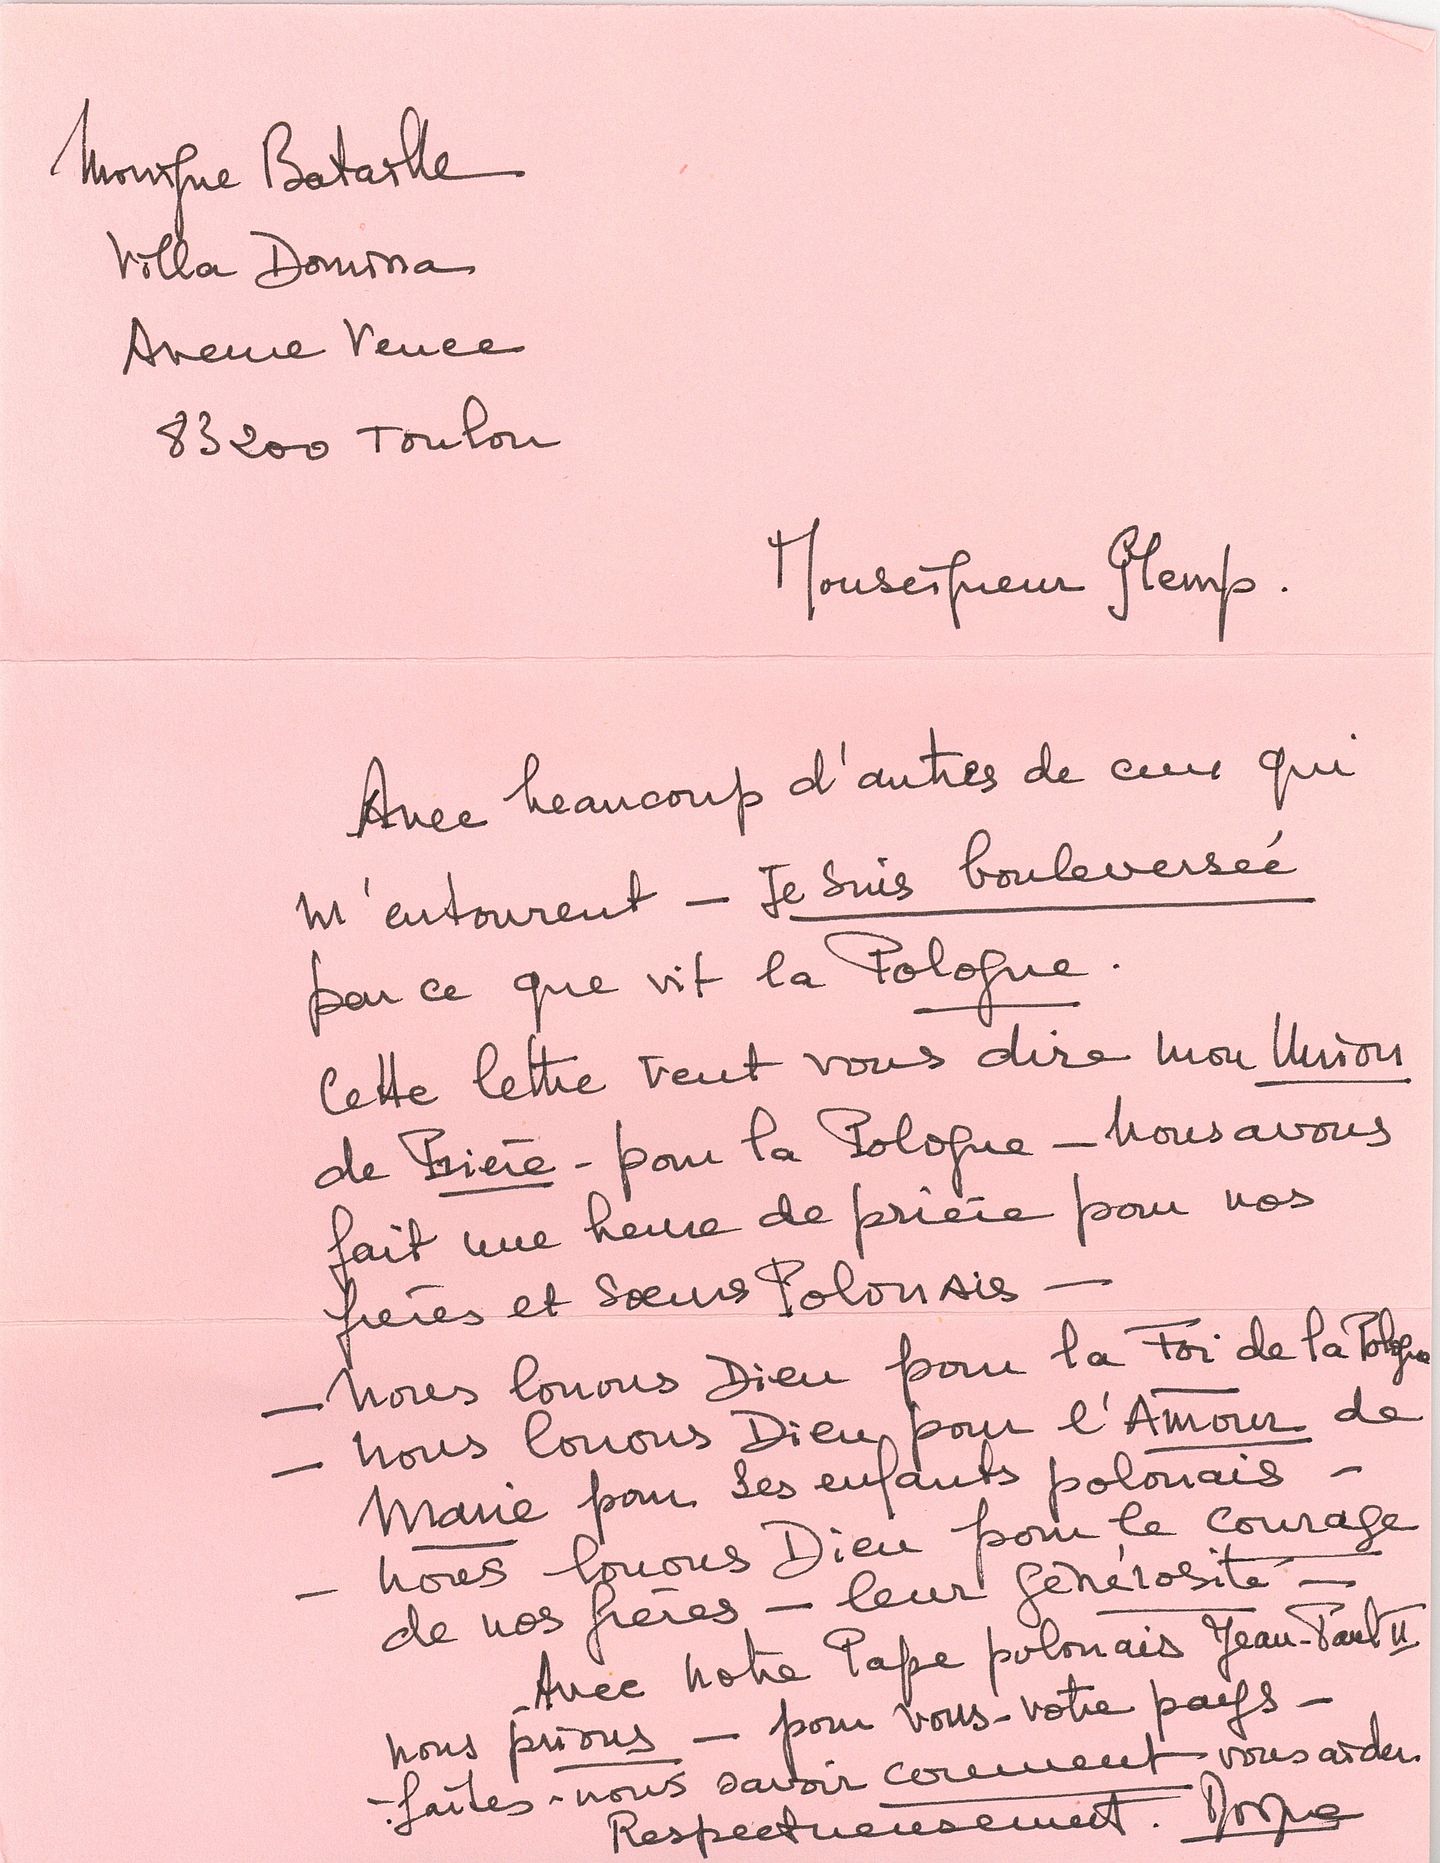 Monique Bataille
Villa Domina
Avenue Vence
83200 Toulon
Monseigneur Glemp.
Avec beaucoup d'autres de ceux qui
m'entourent – Je suis bouleverseé
par ce que vit la Pologne.
Cette lettre veut vous dire mon Union
de Prière – pour la Pologne – Nous avons
fait une heure de prière pour nos
frères et sœurs Polonais –
– Nous louons Dieu pour la Foi de la Pologne
– Nous louons Dieu pour l'Amour de
Marie pour ses enfants polonais –
– Nous louons Dieu pour le courage
de nos frères – leur générosité –
Avec notre Pape polonais Jean-Paul II
nous prions – pour vous – votre pays –
– faites-nous savoir comment vous aider.
Respectueusement.